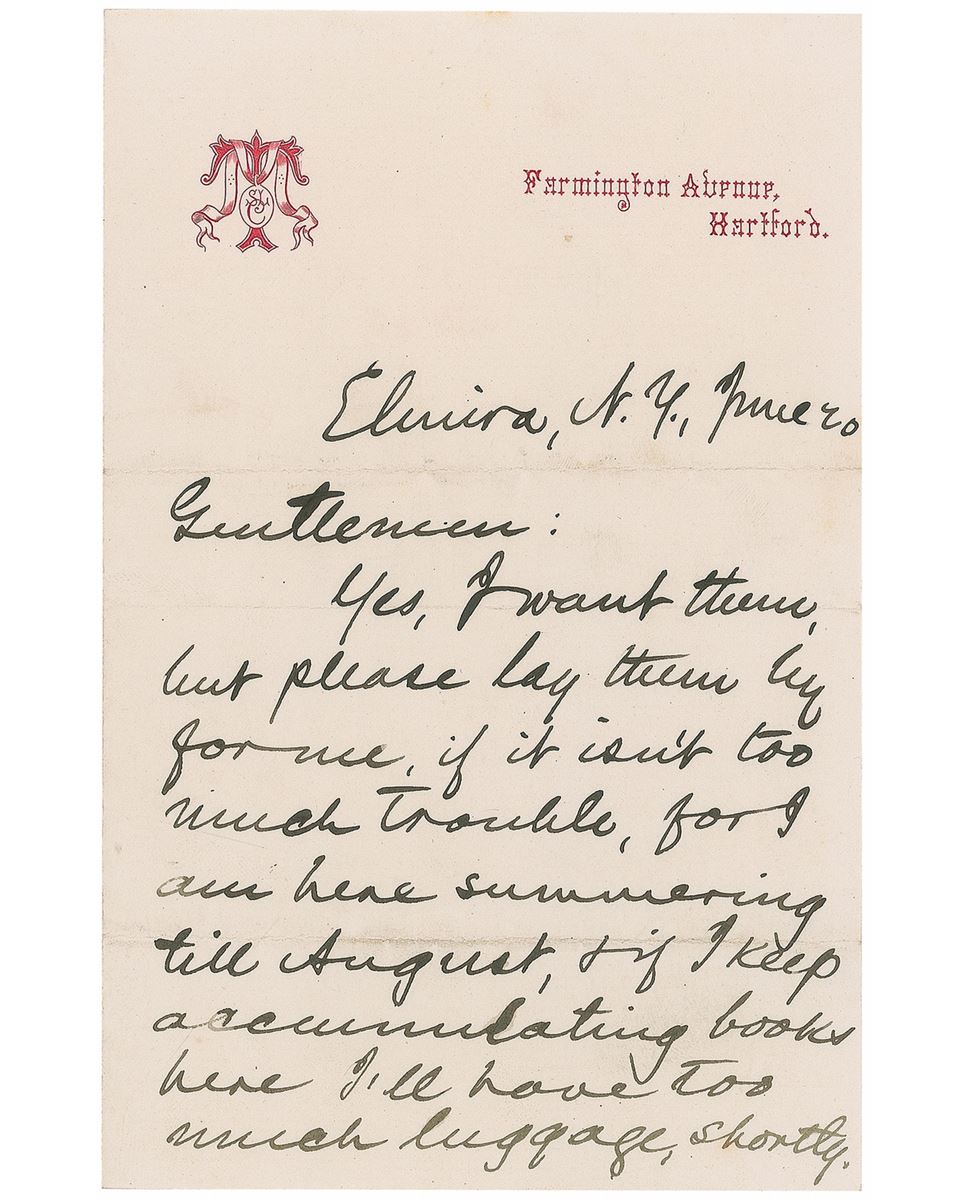 Farmington Avenue,
Hartford.
Elmira, N. Y., June 20
Gentlemen:
Yes, I want them,
but please lay them by
for me, if it isn't too
much trouble, for I
am here summering
till August, & if I keep
accumulating books
here I'll have too
much luggage, shortly.